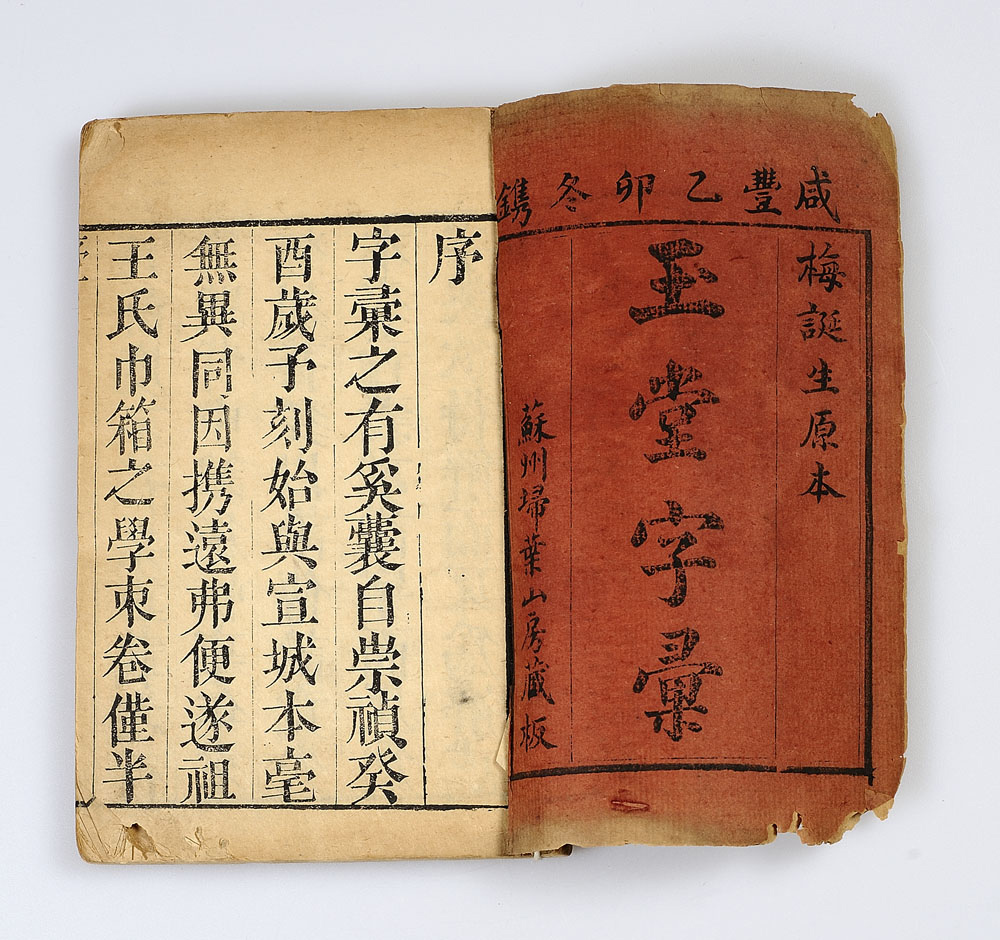 咸豐乙卯冬鐫
梅誕生原本
玉堂字彙
蘇州埽葉山房藏板
序
字彙之有奚囊自崇禎癸
酉歲子刻始與宣城本毫
無異同因携遠弗便遂祖
王氏巾箱之學朿卷僅半